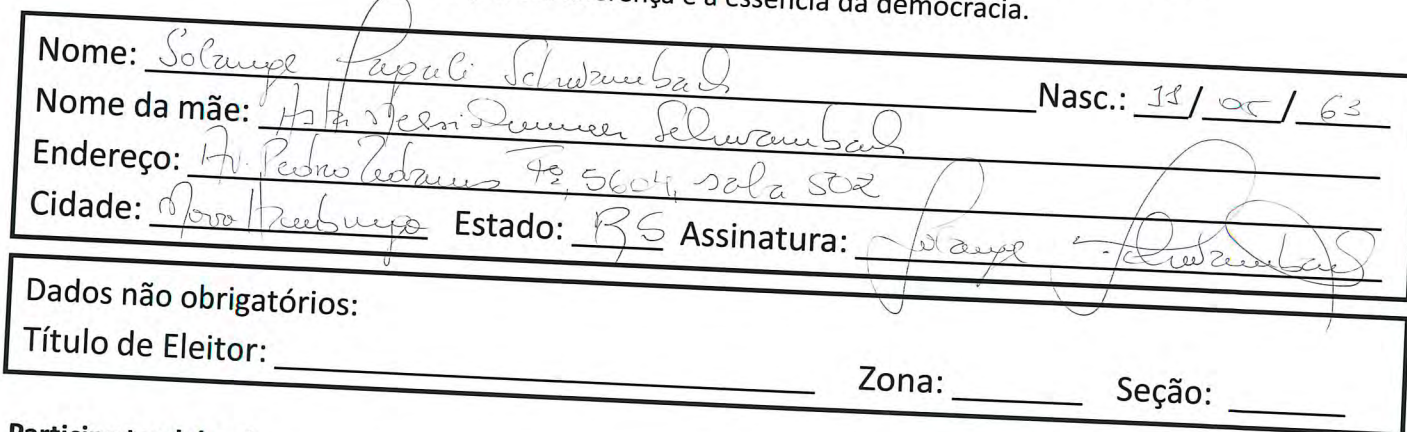 a essência da democracia.
Nome: Solange Schwambach Nasc.: 11/05/63
Nome da mãe: Schwambach
Endereço: Av. Pedro Adams Fº, 5604, sala 502
Cidade: Novo Hamburgo Estado: RS Assinatura: Solange Schwambach
Dados não obrigatórios:
Título de Eleitor: Zona: Seção: